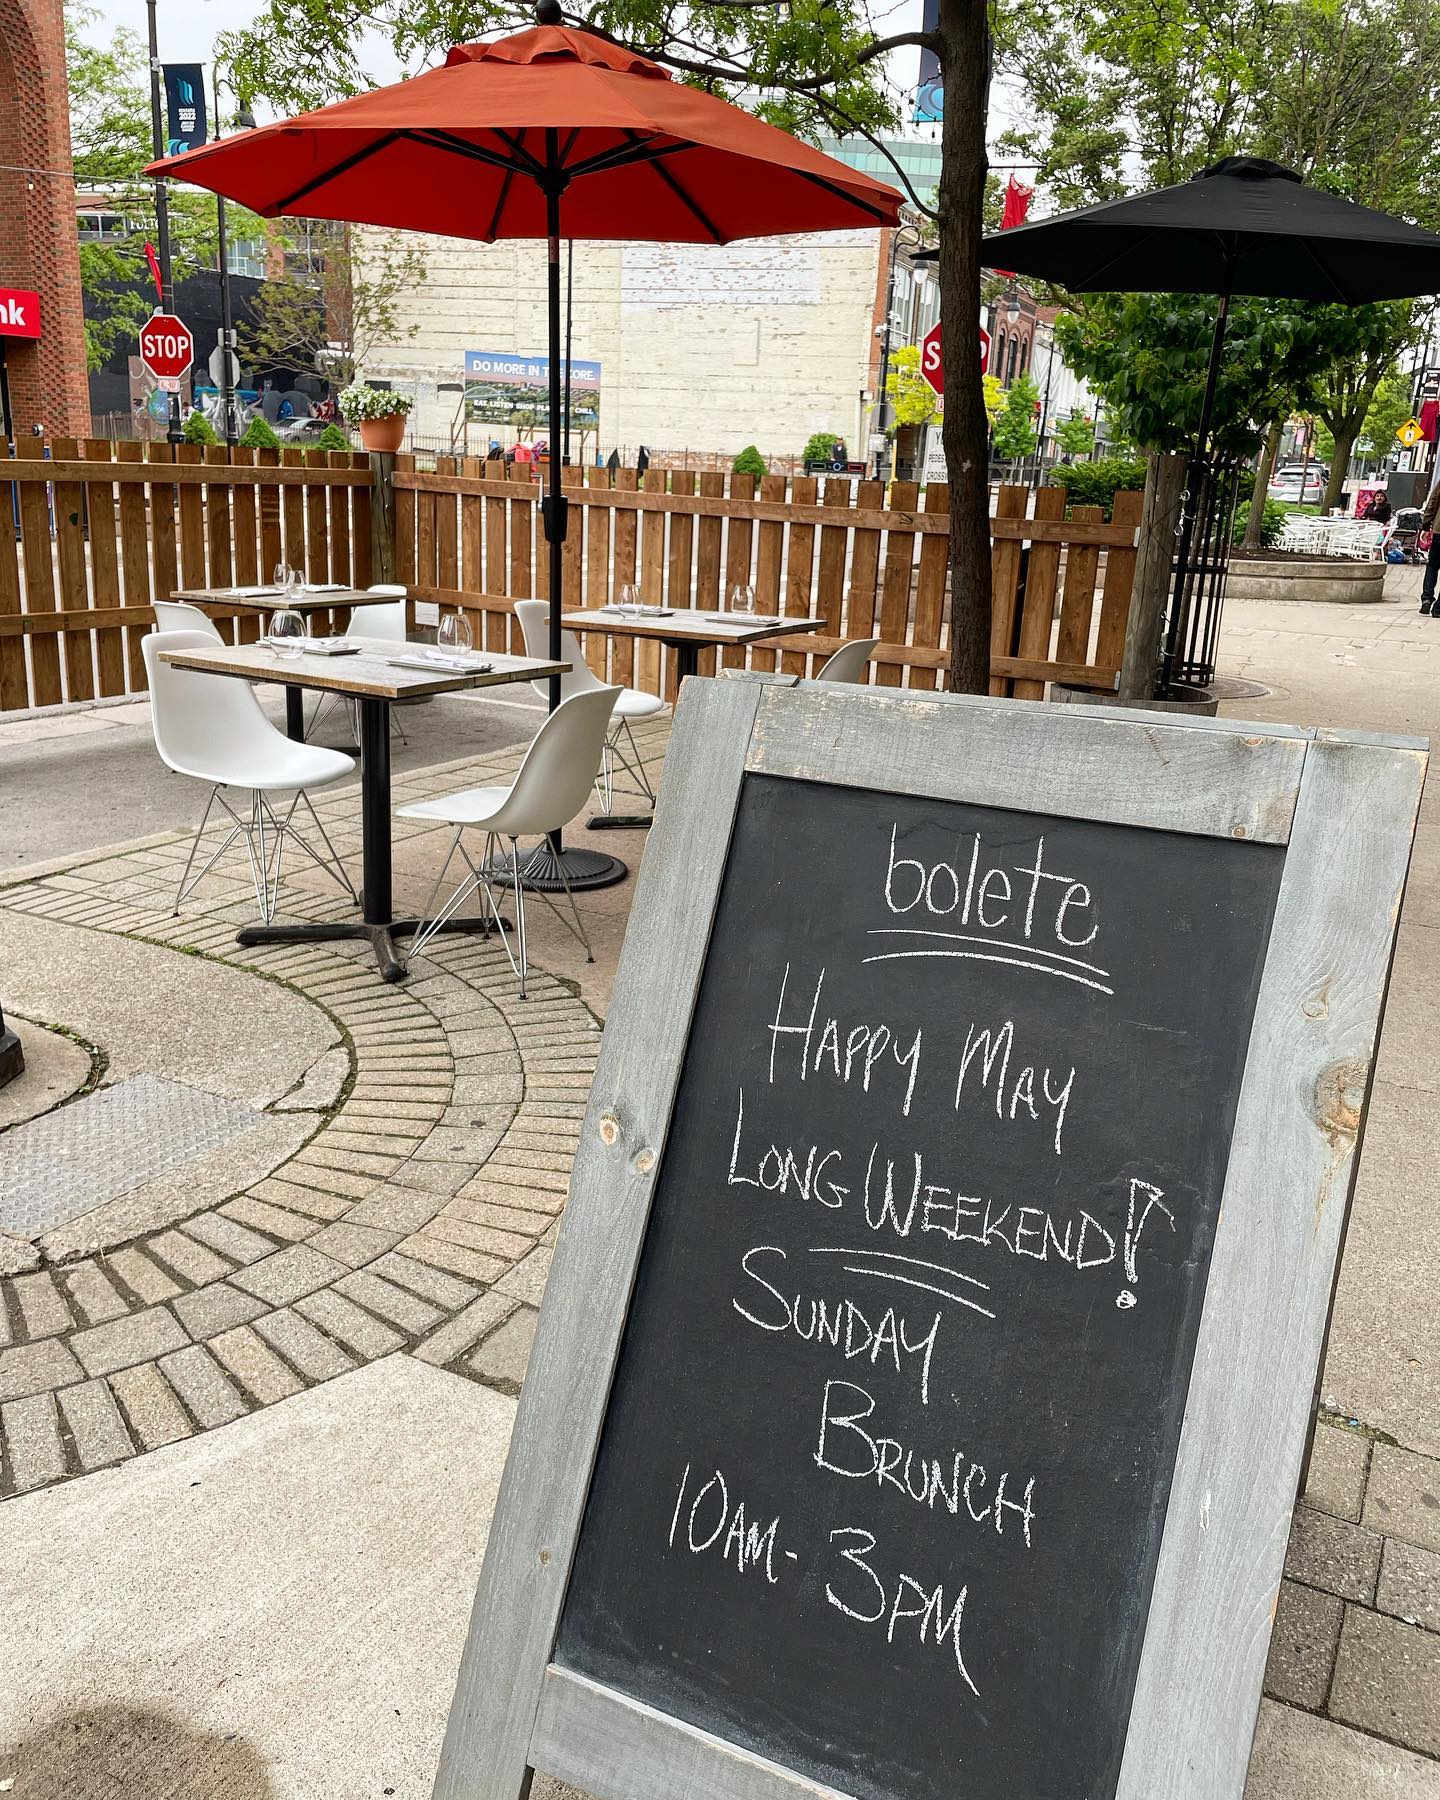 NIAGARA
2022
nk
STOP
DO MORE IN T   ORE.
EAT. LISTEN SHOP PLA   CHILL
S   P
bolete
HAPPY MAY
LONG WEEKEND!
SUNDAY
BRUNCH
10AM - 3PM